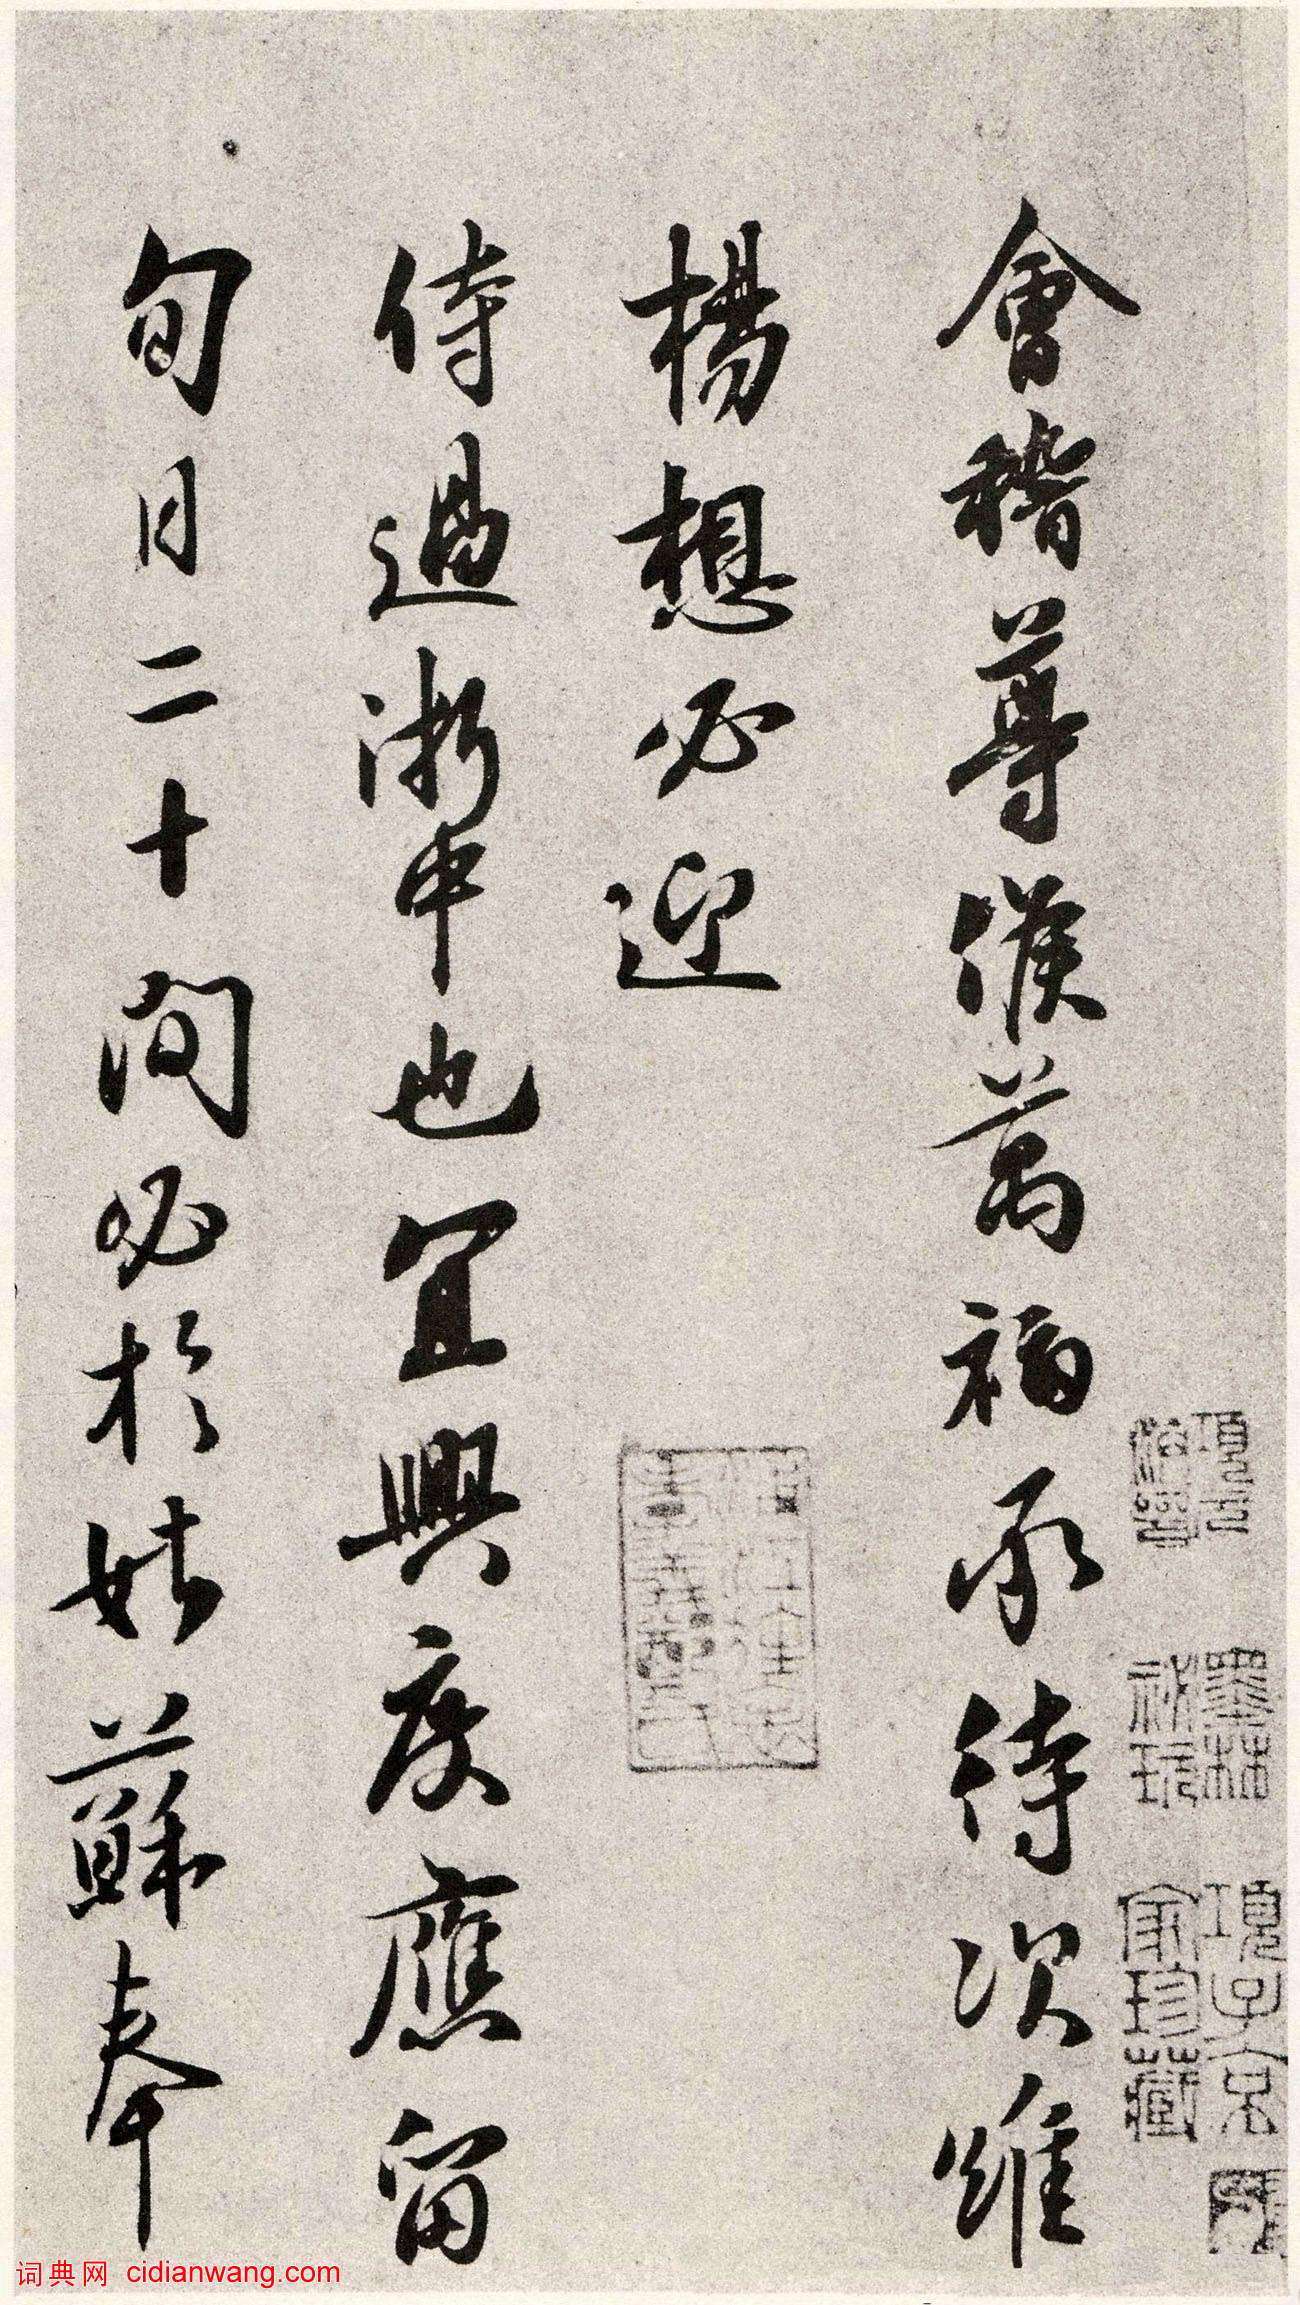 會稽尊候萬福承待次維
楊想必迎
侍過浙中也宜興度應留
旬日二十間必於姑蘇奉
項元汴印
墨林祕玩
項子京家珍藏
词典网 cidianwang.com